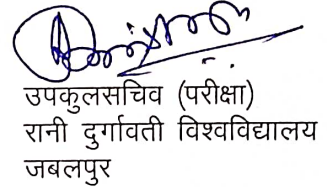 उपकुलसचिव (परीक्षा)
रानी दुर्गावती विश्वविद्यालय
जबलपुर